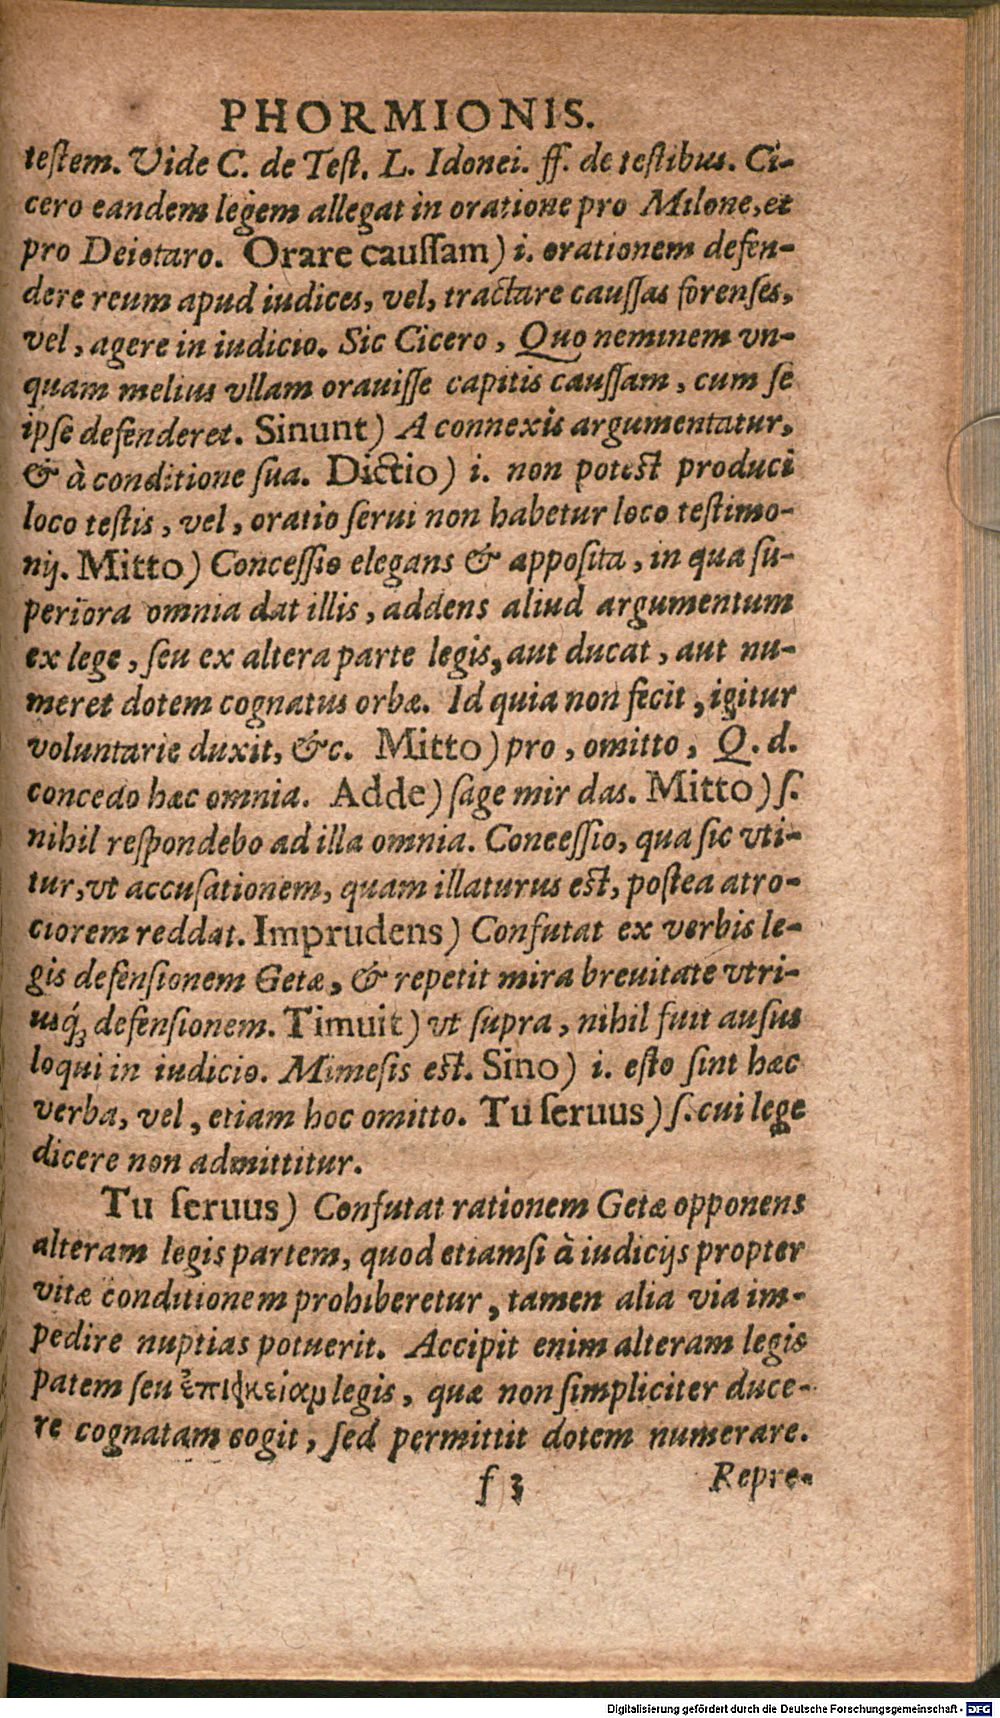 PHORMIONIS.
teſtem. Vide C. de Teſt. L. Idonei. ff. de teſtibus. Ci-
cero eandem legem allegat in oratione pro Milone, et
pro Deiotaro. Orare cauſſam) i. orationem defen-
dere reum apud iudices, vel, tractare cauſſas forenſes,
vel, agere in iudicio. Sic Cicero, Quo neminem vn-
quam melius vllam orauiſſe capitis cauſſam, cum ſe
ipſe defenderet. Sinunt) A connexis argumentatur,
& à conditione ſua. Dictio) i. non poteſt produci
loco teſtis, vel, oratio ſerui non habetur loco teſtimo-
nij. Mitto) Conceſſio elegans & appoſita, in qua ſu-
periora omnia dat illis, addens aliud argumentum
ex lege, ſeu ex altera parte legis, aut ducat, aut nu-
meret dotem cognatus orbæ. Id quia non fecit, igitur
voluntarie duxit, &c. Mitto) pro, omitto, Q. d.
concedo hæc omnia. Adde) ſage mir das. Mitto) ſ.
nihil reſpondebo ad illa omnia. Conceſſio, qua ſic vti-
tur, vt accuſationem, quam illaturus eſt, poſtea atro-
ciorem reddat. Imprudens) Confutat ex verbis le-
gis defenſionem Getæ, & repetit mira breuitate vtri-
usq́; defenſionem. Timuit) vt ſupra, nihil fuit auſus
loqui in iudicio. Mimeſis eſt. Sino) i. eſto ſint hæc
verba, vel, etiam hoc omitto. Tu ſeruus) ſ. cui lege
dicere non admittitur.
Tu ſeruus) Confutat rationem Getæ opponens
alteram legis partem, quod etiamſi à iudicijs propter
vitæ conditionem prohiberetur, tamen alia via im-
pedire nuptias potuerit. Accipit enim alteram legis
patem ſeu ἐπιεικείαμ legis, quæ non ſimpliciter duce-
re cognatam cogit, ſed permittit dotem numerare.
f 3 Repre-
Digitalisierung gefördert durch die Deutsche Forschungsgemeinschaft - DFG